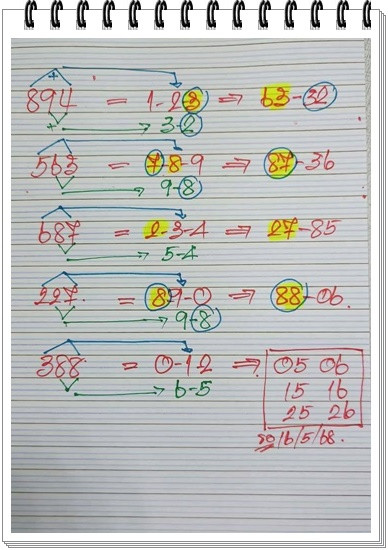 +
894 = 1-2-3 ⇒ 63-32
+ → 3-2
563 = 7-8-9 ⇒ 87-36
→ 9-8
687 = 2-3-4 ⇒ 27-85
→ 5-4
227 = 8-9-0 ⇒ 88-06
→ 9-8
388 = 0-1-2 ⇒ 05 06
→ 6-5 15 16
25 26
16/5/68.